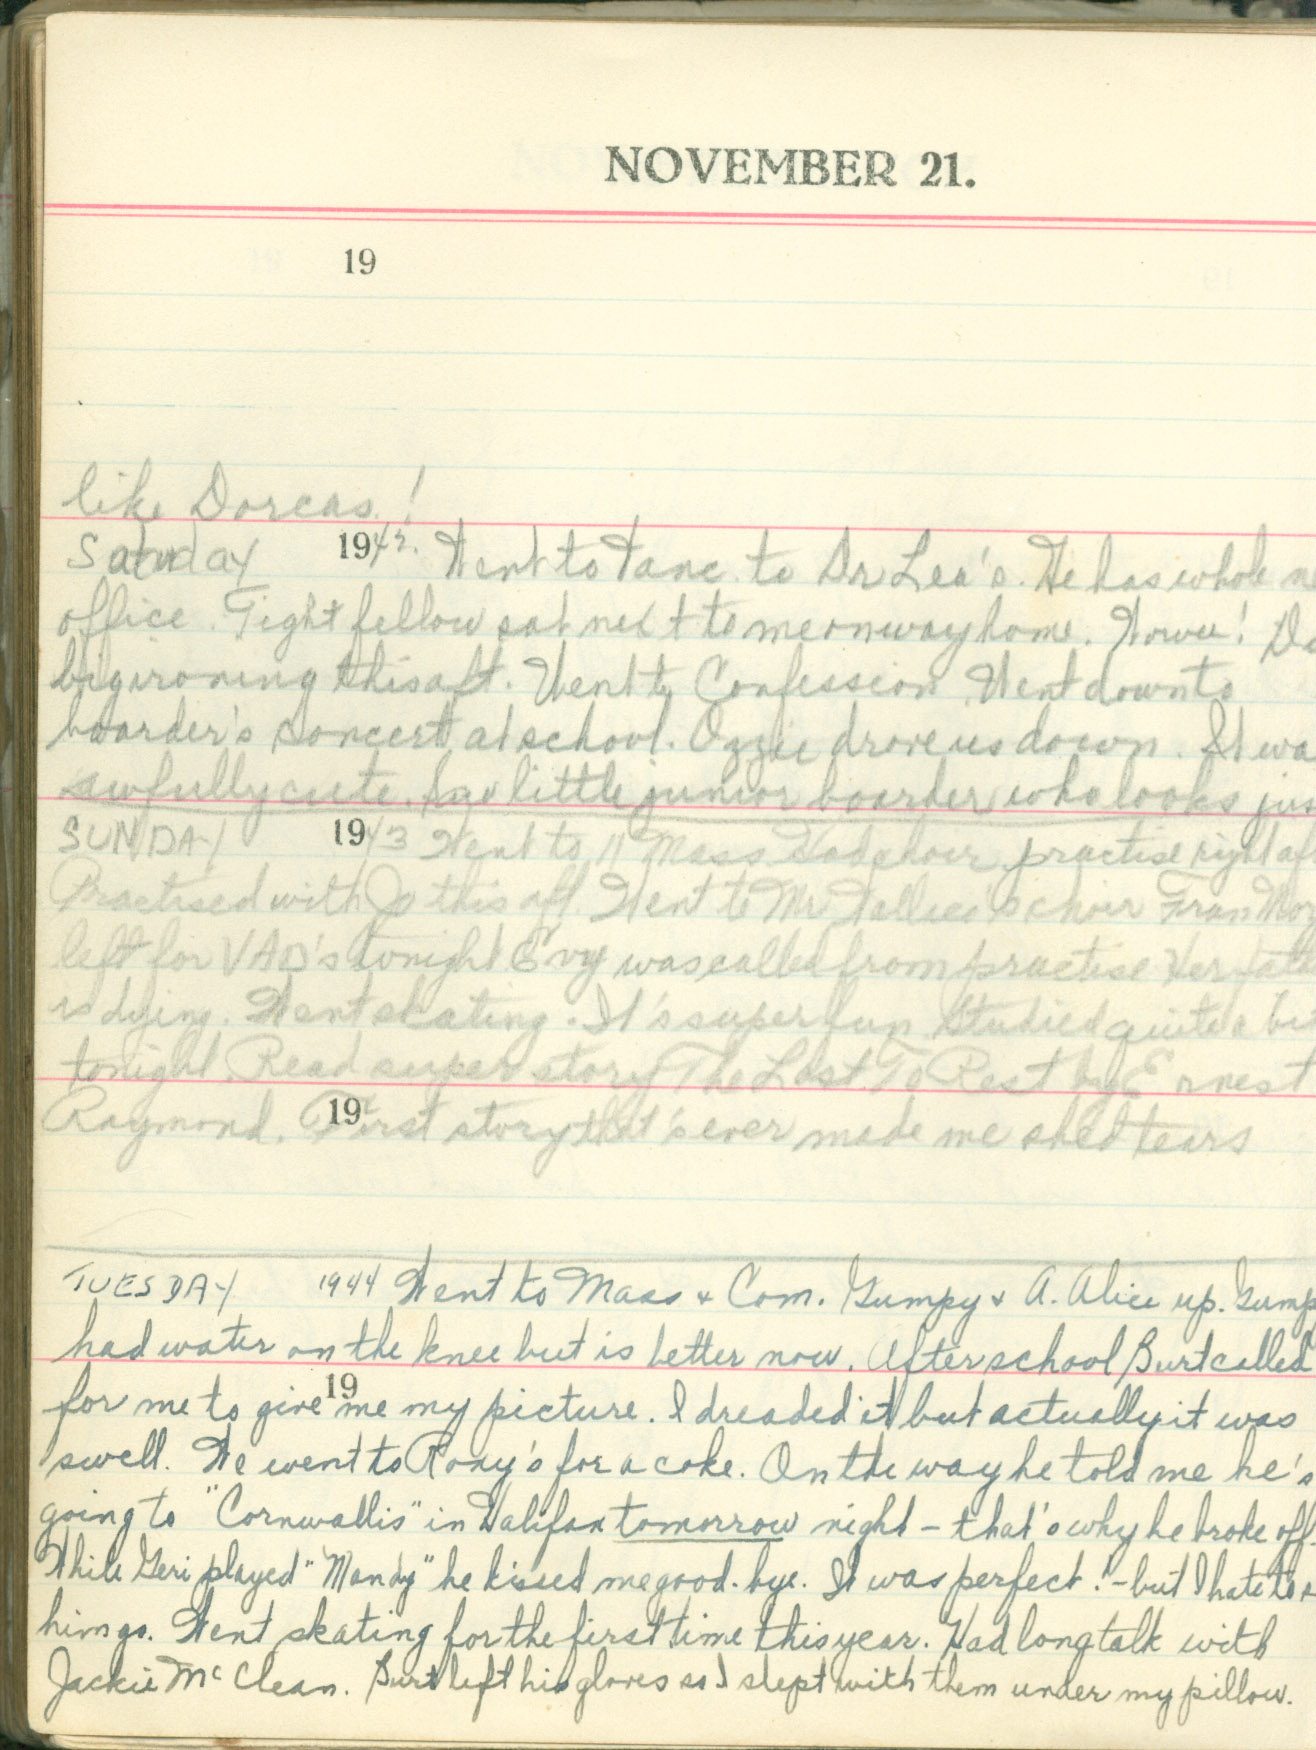 NOVEMBER 21.
19
like Dorcas!
Saturday 1942. Went to Vanc. to Dr Lea's. He has whole
office. Tight fellow sat next to me on way home. Wowee!
big ironing this aft. Went to Confession. Went down to
boarder's concert at school. Ozzie drove us down. It wa
awfully cute. Saw little junior boarder who looks jus
SUNDAY 1943 Went to 11 Mass Had choir practise right af
Practised with Jo this aft. Went to Mr. choir Fran
left for VAD's tonight Evy was called from practise Her
is dying. Went skating. It's super fun. Studied quite a bi
tonight. Read super story The Last To Rest by Ernest
19
Raymond. First story that's ever made me shed tears
TUESDAY 1944 Went to Mass & Com. Gumpy & A. Alice up. Gump
had water on the knee but is better now. After school Burt called
19
for me to give me my picture. I dreaded it but actually it was
swell. We went to Roxy's for a coke. On the way he told me he's
going to "Cornwallis" in Halifax tomorrow night – that's why he broke off.
While Geri played "Mandy" he kissed me good-bye. It was perfect! – but I hate to
him go. Went skating for the first time this year. Had long talk with
Jackie McClean. Burt left his gloves so I slept with them under my pillow.